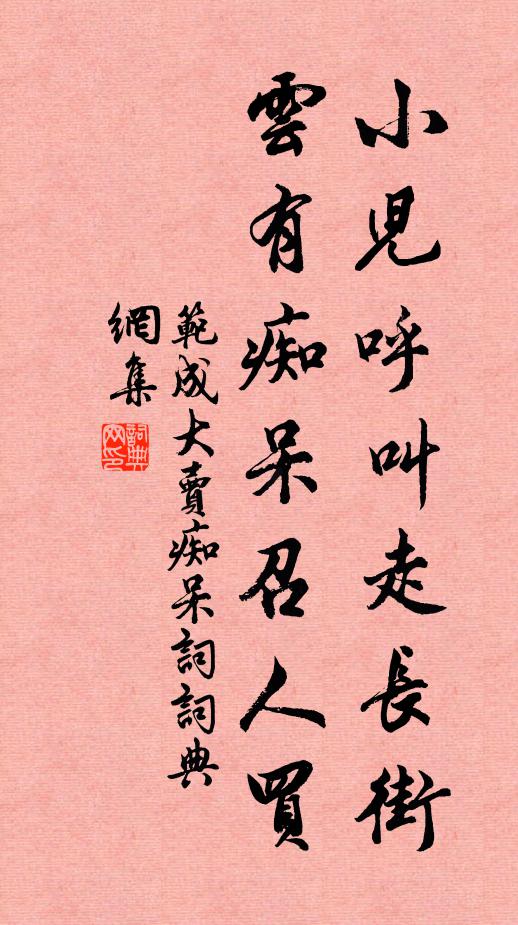 小兒呼叫走長街
雲有痴呆召人買
範成大賣痴呆詞詞典
網集
詞典網印